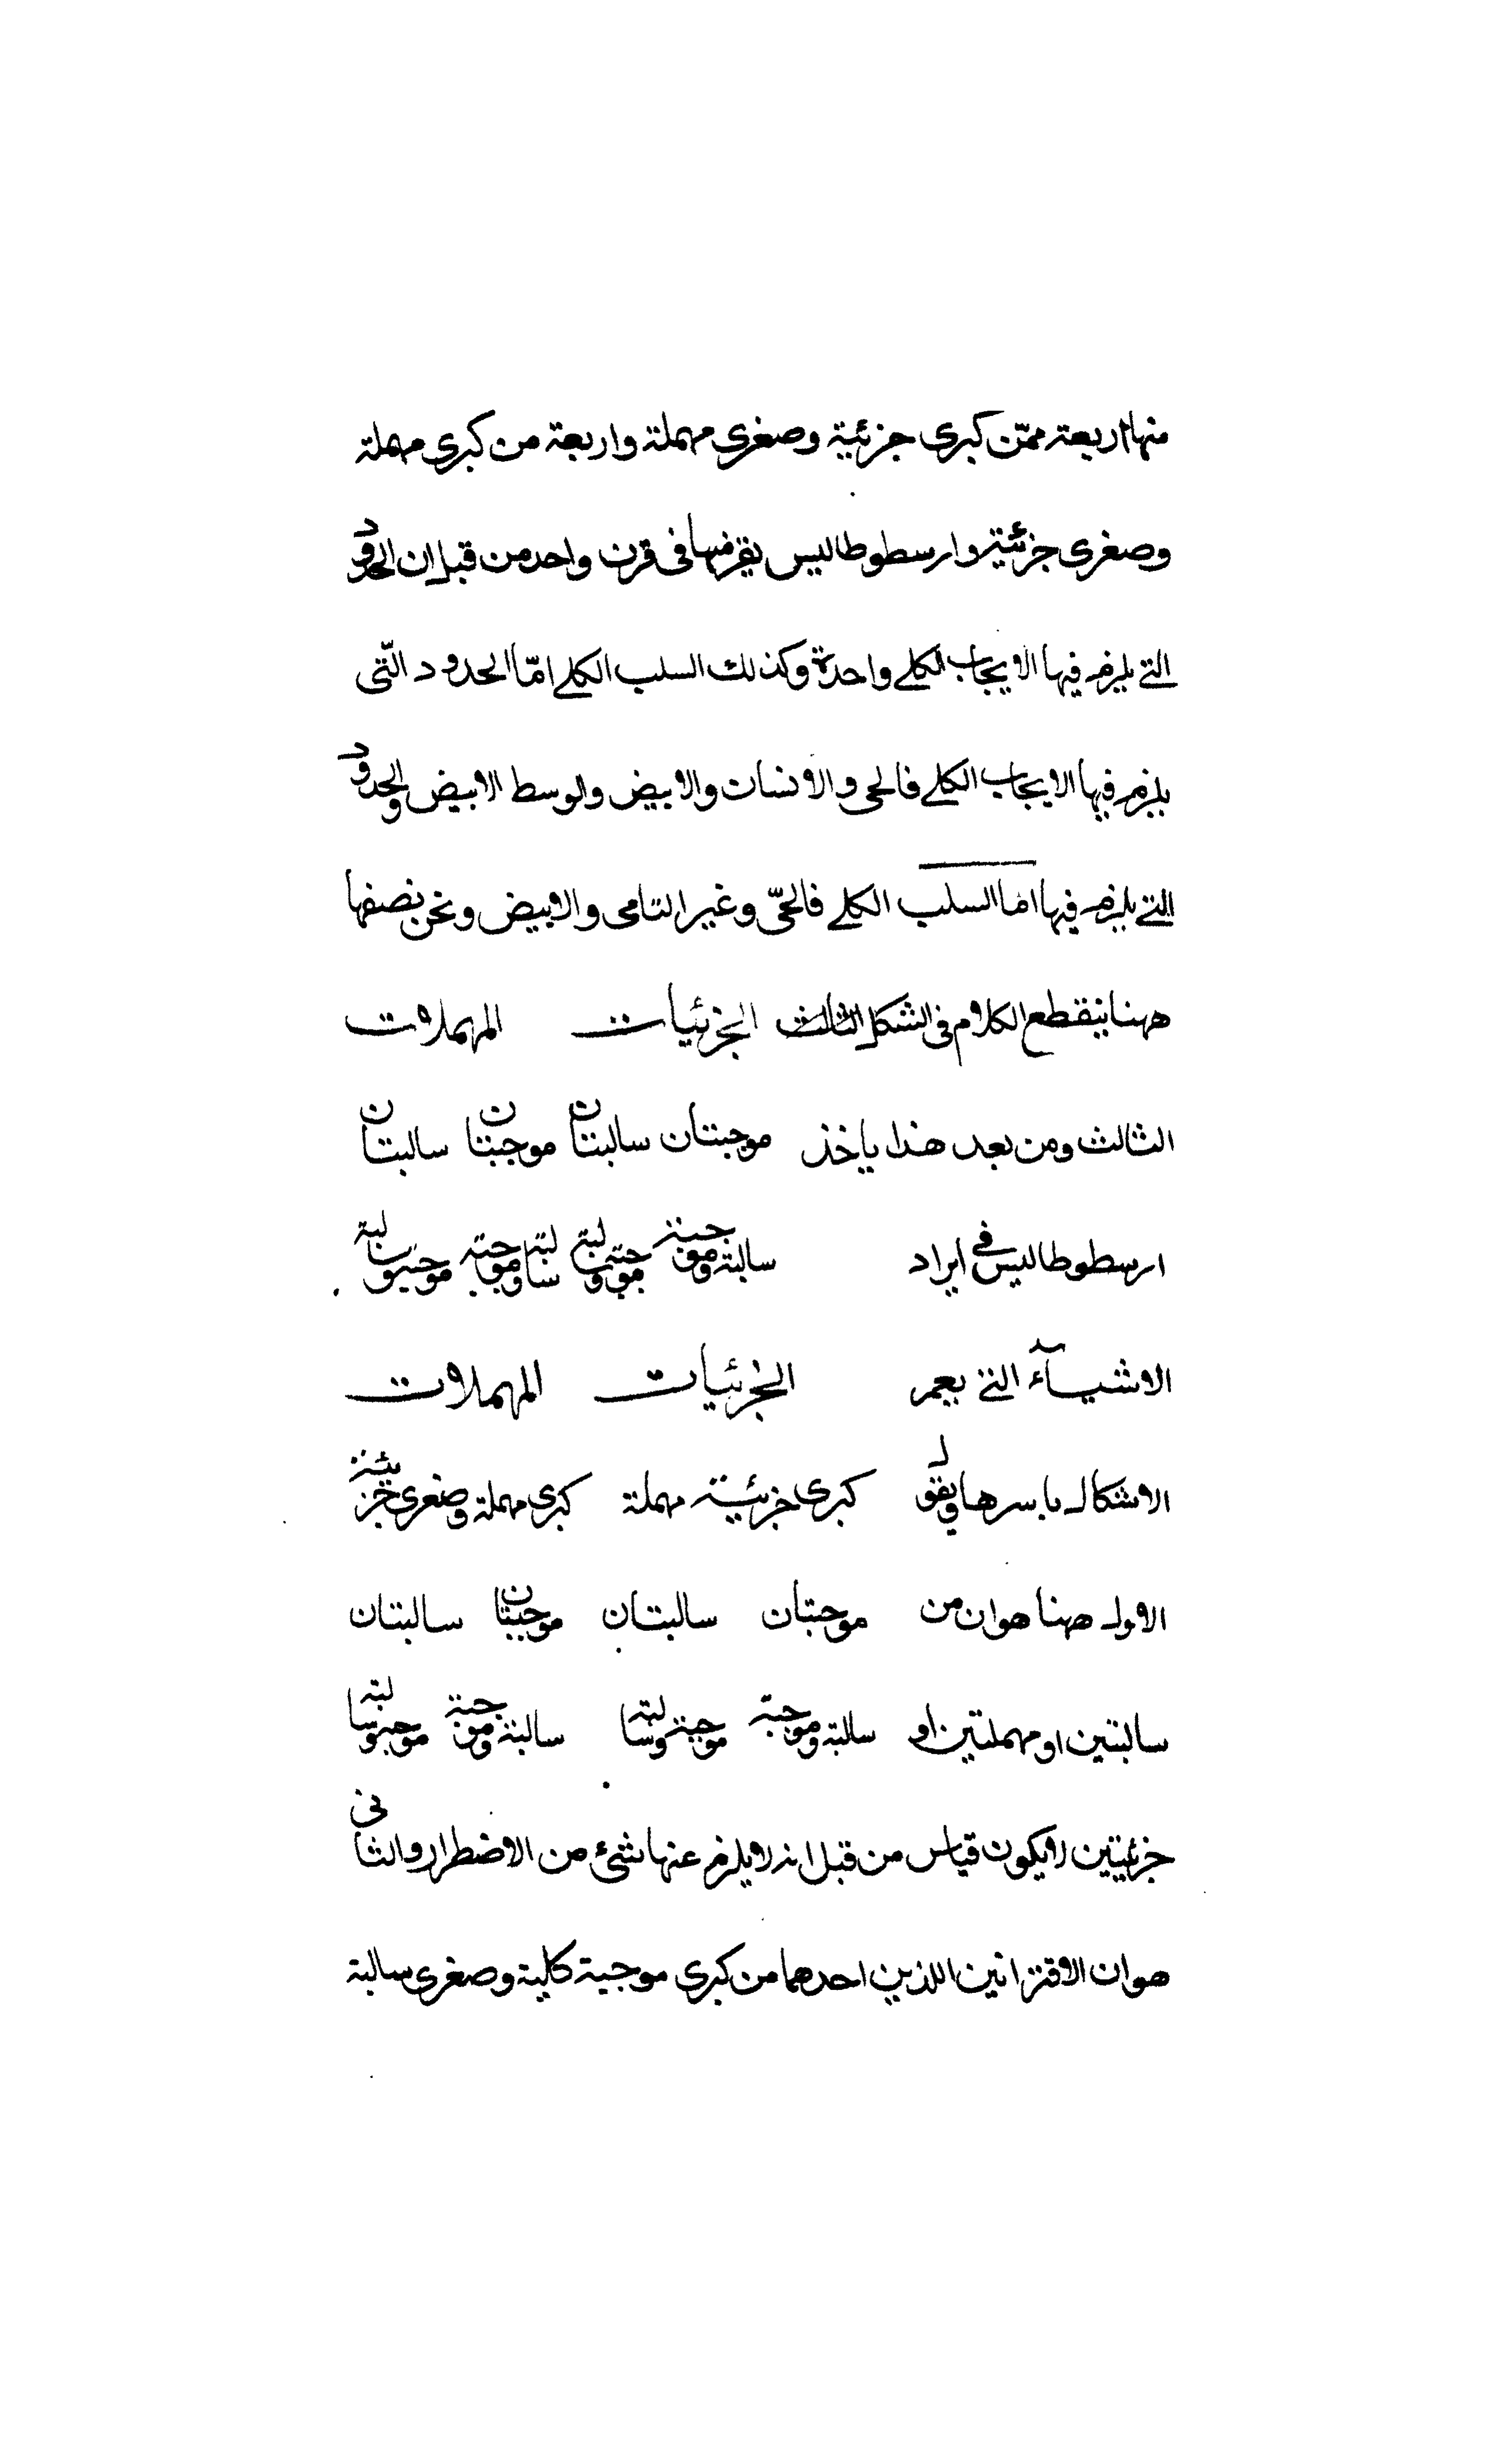 منها اربعة ممّن كبرى جزئية وصغرى مهملة واربعة من كبرى مهملة
وصغرى جزئية وارسطوطاليس يقرنها فى قرن واحد من قبل ان الحدود
التى يلزم فيها الايجاب الكلى واحدة وكذلك السلب الكلى امّا الحدود الّتى
يلزم فيها الايجاب الكلى فالحى والانسان والابيض والوسط الابيض والحدود
التى يلزم فيها اما السلب الكلى فالحىّ وغير النامى والابيض ونحن نصفها
ههنا ينقطع الكلام فى الشكل الثالث الجزئيات المهملات
الثالث ومن بعد هذا ياخذ موجبتان سالبتان موجبتان سالبتان
ارسطوطاليس فى ايراد سالبة وموجبة موجبة وسالبة سالبة وموجبة موجبة وسالبة
الاشيآء التى يعم الجزئيات المهملات
الاشكال باسرها ويقول كبرى جزئية مهملة كبرى مهملة وصغرى جزئية
الاول ههنا هو ان من موجبتان سالبتان موجبتان سالبتان
سالبتين او مهملتين او سالبة وموجبة موجبة وسالبة سالبة وموجبة موجبة وسالبة
جزئيتين لا يكون قياس من قبل انه لا يلزم عنها شئ من الاضطرار والثانى
هو ان الاقترانين اللذين احدهما من كبرى موجبة كلية وصغرى سالبة